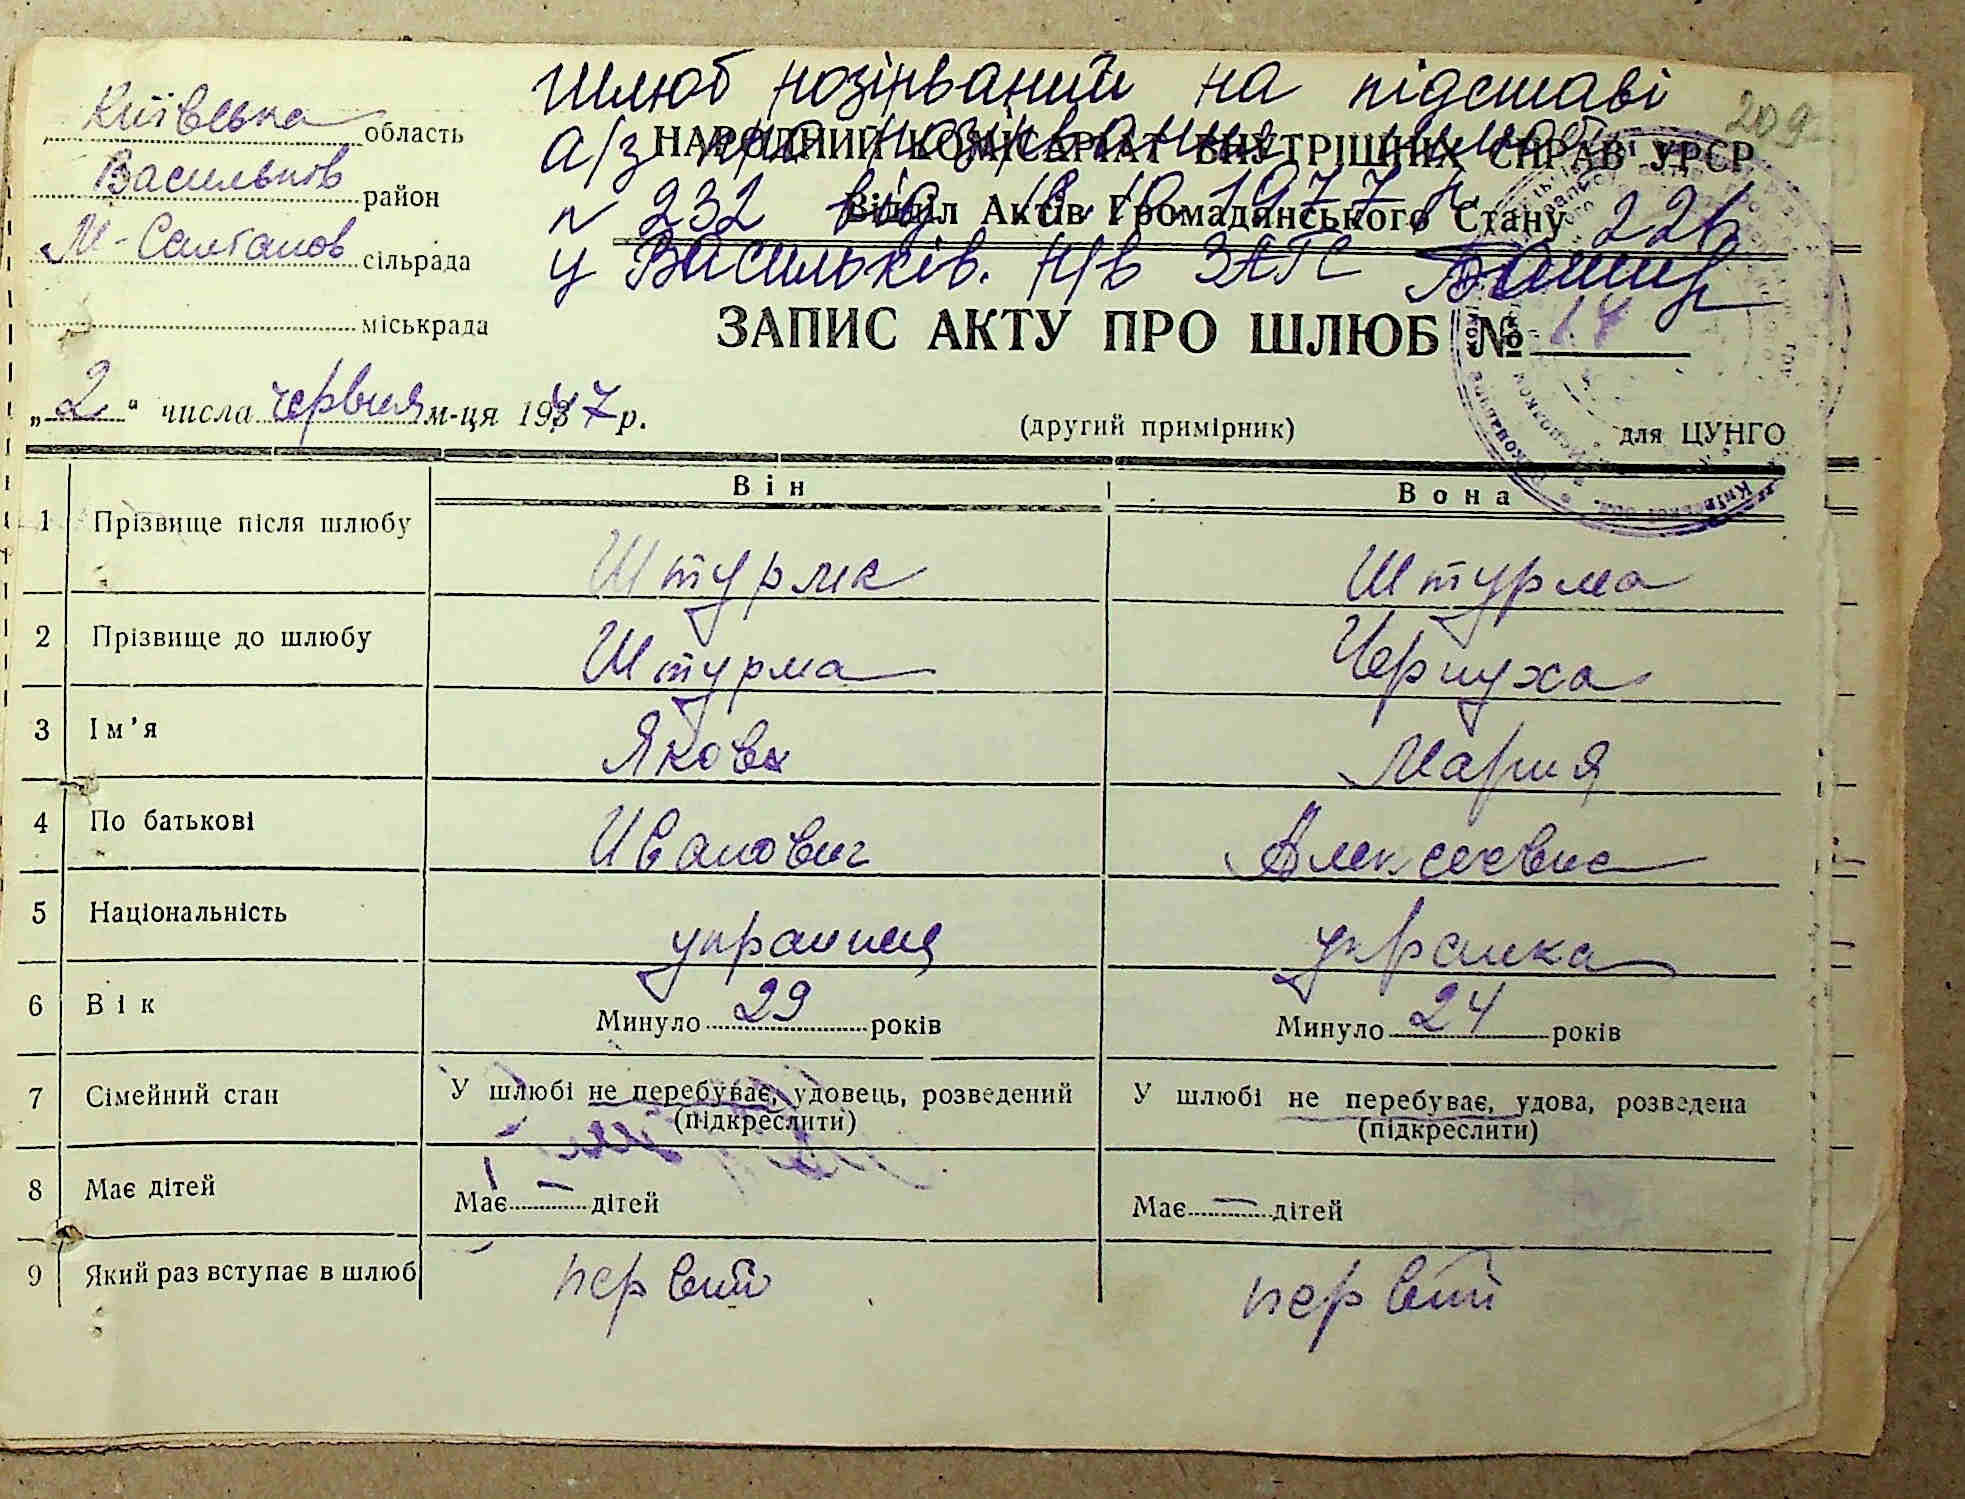 Шлюб розірваний на підставі
209
Київська область
а/з про розірвання шлюбу
НАРОДНИЙ КОМІСАРІАТ ВНУТРІШНІХ СПРАВ УРСР
Васильків район
N 232 від 18. 1977 р
Відділ Актів Громадянського Стану 226
М-Салтанов сільрада
у Васильків. р/в ЗАГС
міськрада
ЗАПИС АКТУ ПРО ШЛЮБ № 14
„2“ числа червня м-ця 1947 р.
(другий примірник) для ЦУНГО
Він Вона
1 Прізвище після шлюбу Штурма Штурма
2 Прізвище до шлюбу Штурма Чернуха
3 Ім'я Яков Мария
4 По батькові Иванович Алексеевна
5 Національність украинец украинка
6 Вік Минуло 29 років Минуло 24 років
7 Сімейний стан У шлюбі не перебуває, удовець, розведений У шлюбі не перебуває, удова, розведена
(підкреслити) (підкреслити)
8 Має дітей Має — дітей Має — дітей
9 Який раз вступає в шлюб первый первый